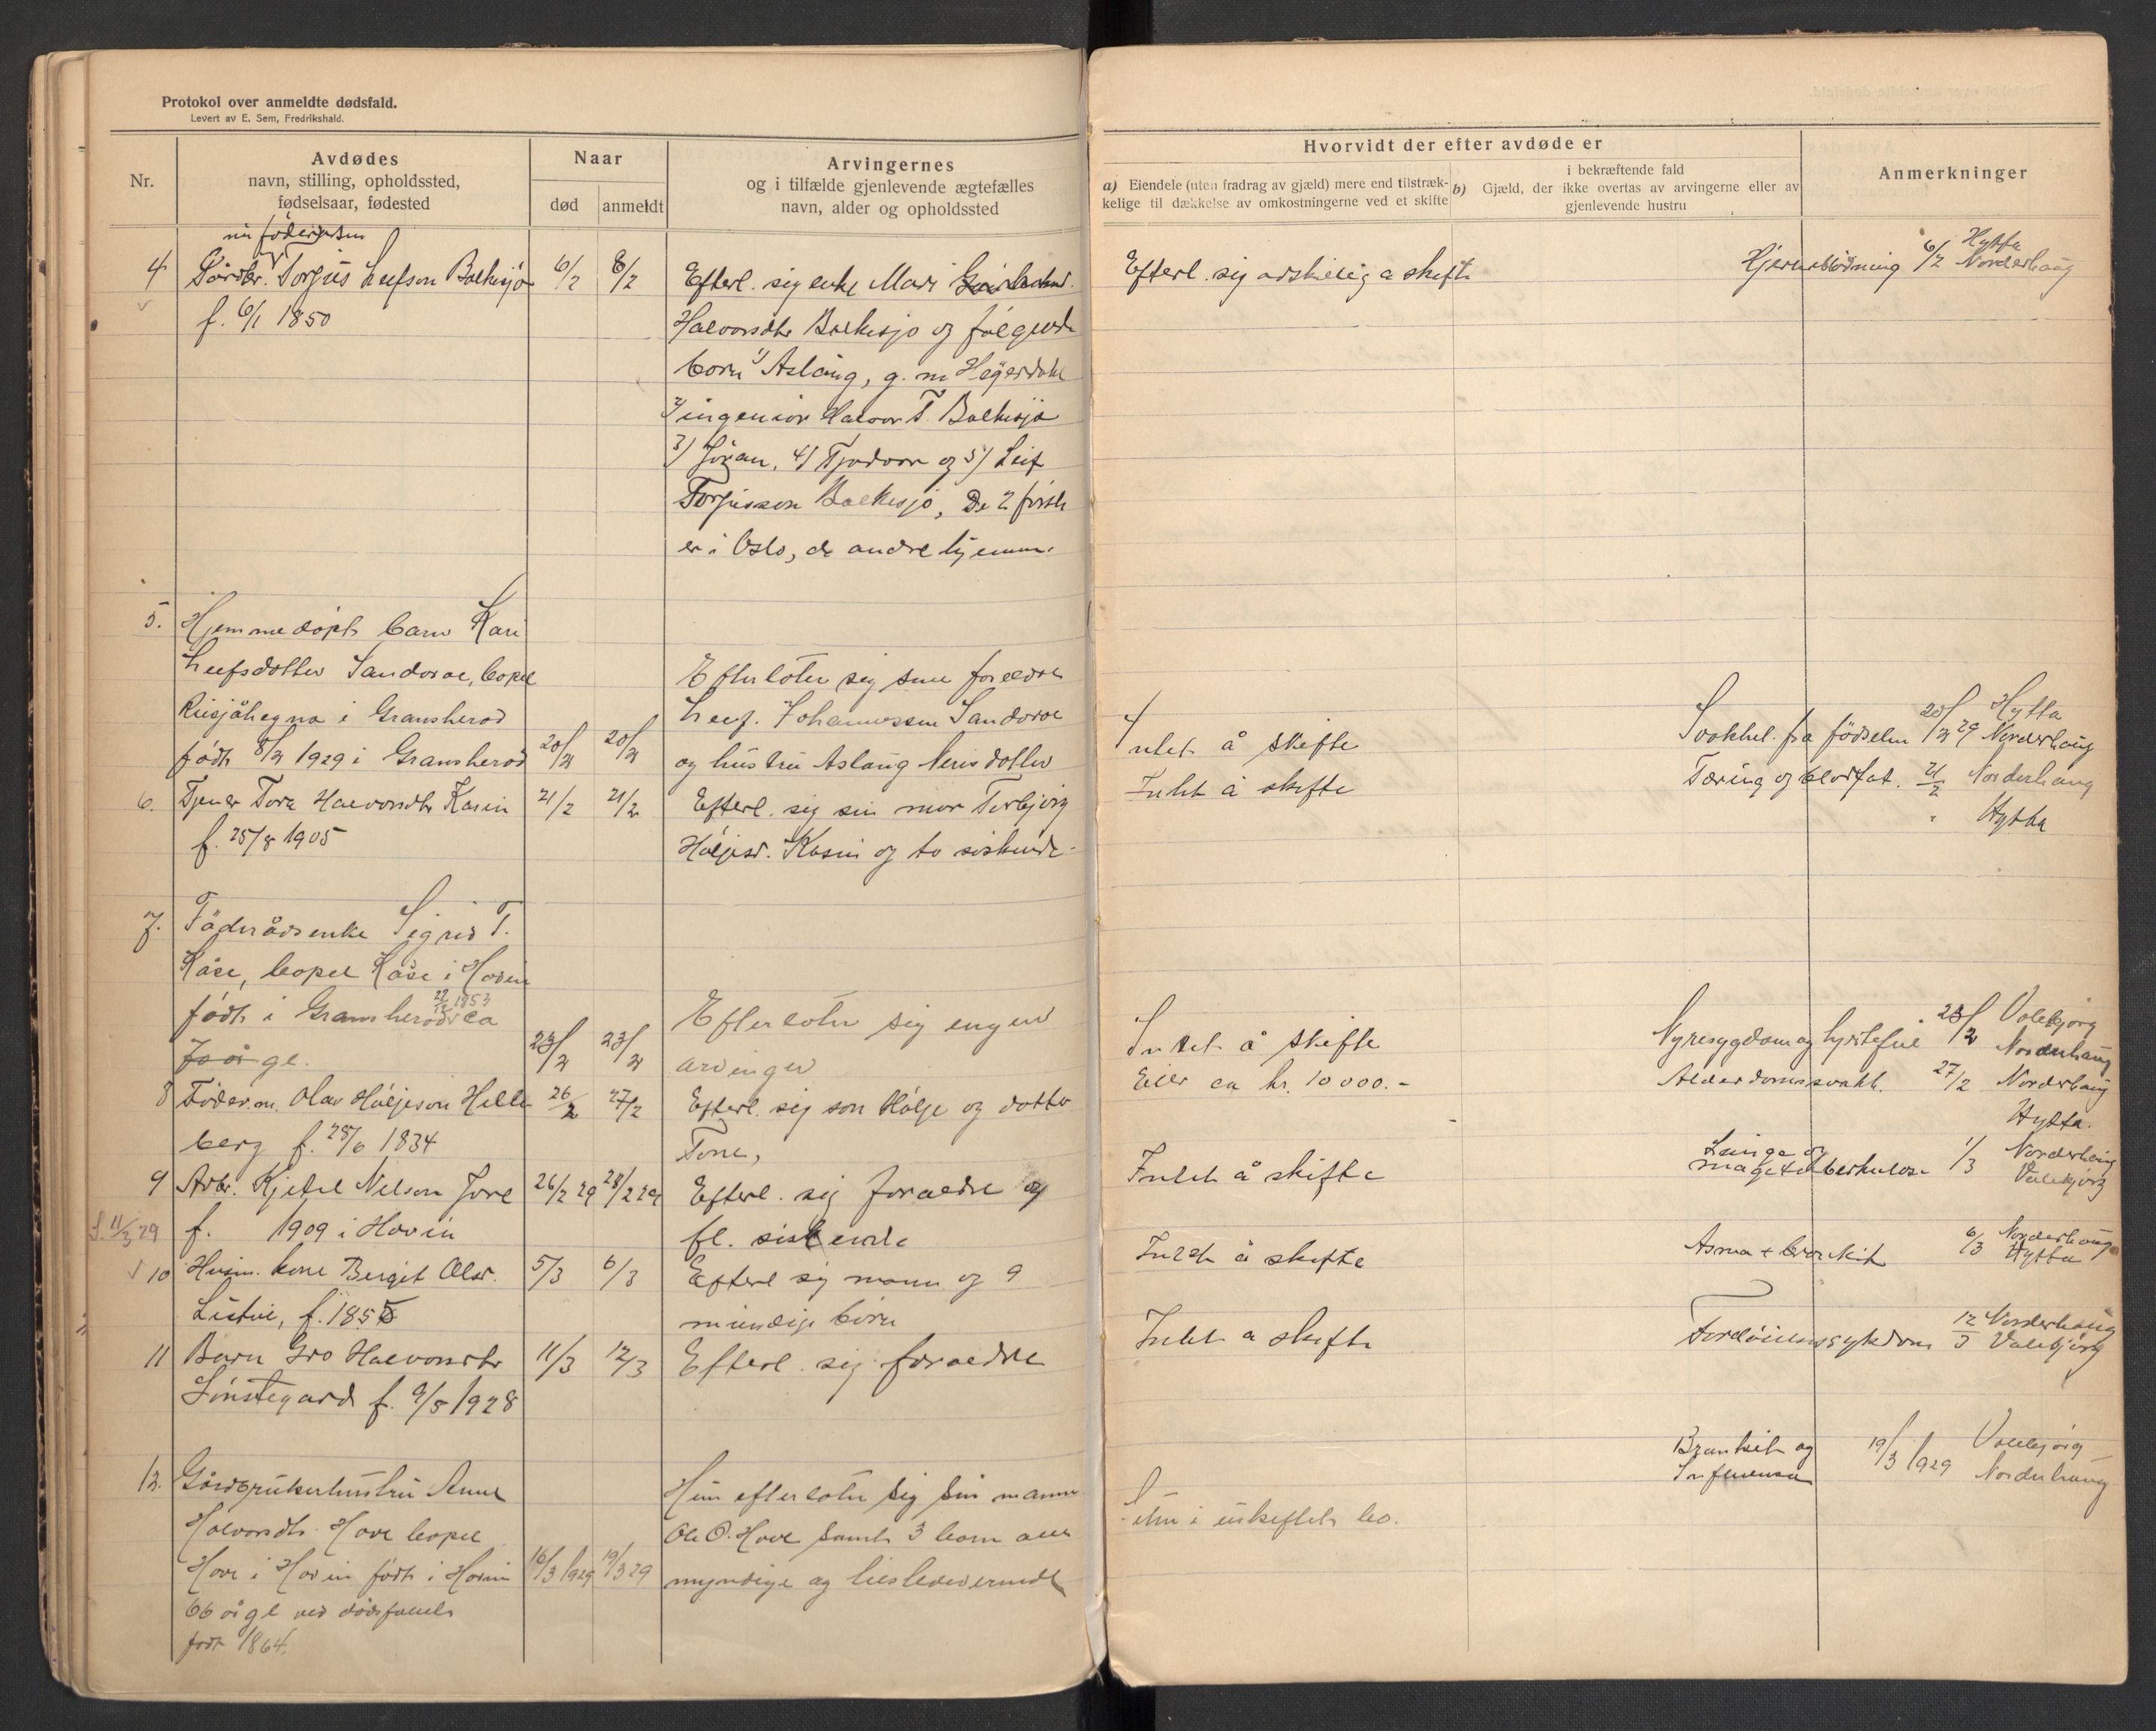 Protokol over anmeldte dødsfald.
Levert av E. Sem, Fredrikshald.
Nr.
Avdødes
navn, stilling, opholdssted,
fødselsaar, fødested
Naar
død
anmeldt
Arvingernes
og i tilfælde gjenlevende ægtefælles
navn, alder og opholdssted
nu
4 Gårdbr. Torgus Leefson Bolkesjø 6/2 8/2
f. 6/1 1850
Efterl. sig enke Mari
Halvorsdtr Bolkesjø og følgende
born 1) Aslaug, g. m
2) ingeniør Halvor T. Bolkesjø
3) Jøran, 4) Tjodvor og 5) Leif
Torgusson Bolkesjø, De 2 første
er i Oslo, de andre hjemme.
5. Hjemmedøpt barn Kari
Leefsdotter Sandoroe, bopel
i Gransherad
født 8/2 1929 i Gransherad 20/2 20/2
Efterlater sig sine foreldre
Leef. Johannessen Sandoroe
og hustru Aslaug Nerisdotter
6. Tjener Tora Halvorsdtr Kasin 21/2 21/2
f. 25/8 1905
Efterl. sig sin mor Torbjørg
Høljesd. Kasin og to søskende.
7. Føderådsenke Sigrid T.
Kåse, bopel Kåse i Hovin
født i Gransherad ca
22/12 1853
70 år gl. 23/2 23/2
Efterlater sig engen
arvinger
8 Føder.m. Olav Høljeson Helle- 26/2 27/2
berg f. 28/6 1834
Efterl. sig søn Hølje og dotter
Tone,
9 Arbr. Kjetil Nelson Jore 26/2 29 28/2 29
f. 1909 i Hovin
Efterl. sig foraeldre og
fl. siskende
S. 11/3 29
10 Husm. kone Bergit Olsd. 5/3 6/3
f. 1855
Efterl sig mann og 9
mundige børn
11 Barn Gro Halvorsdtr 11/3 12/3
Lønstegard f. 9/5 1928
Efterl. sig foraeldre
12. Gårdbrukerhustru Anne
Halvorsdtr. Hove bopel
Hove i Hovin født i Hovin 16/3 1929 19/3 29
66 år gl ved dødsfallet
født 1864.
Hun efterlater sig sin mann
Ole O. Hove samt 3 barn alle
myndige og tilstedeverende
Hvorvidt der efter avdøde er
a) Eiendele (uten fradrag av gjæld) mere end tilstræk-
kelige til dækkelse av omkostningerne ved et skifte
i bekræftende fald
b) Gjæld, der ikke overtas av arvingerne eller av
gjenlevende hustru
Anmerkninger
Efterl. sig adskielig a skifte
Hjerneblødning 6/2 Hytta
Norderhaug
Intet å skifte
Svakhet fra fødselen 20/2 29 Hytta
Norderhaug
Intet å skifte
Tæring og 21/2 Norderhaug
Hytta
Intet å skifte
Nyresygdom og hjertefeil 23/2 Valebjørg
Norderhaug
Eier ca kr. 10 000.-
Alderdomssvakh. 27/2 Norderhaug
Hytta.
Intet å skifte
Lunge og
magetuberkulose 1/3 Norderhaug
Valebjørg
Intet å skifte
Asma + bronkit 6/3 Norderhaug
Hytta
Intet a skifte
Fordøielsessykdom 12/3 Norderhaug
Valebjørg
Bronkit og
Influensa 19/3 1929 Valebjørg
Norderhaug
i uskiftet bo.